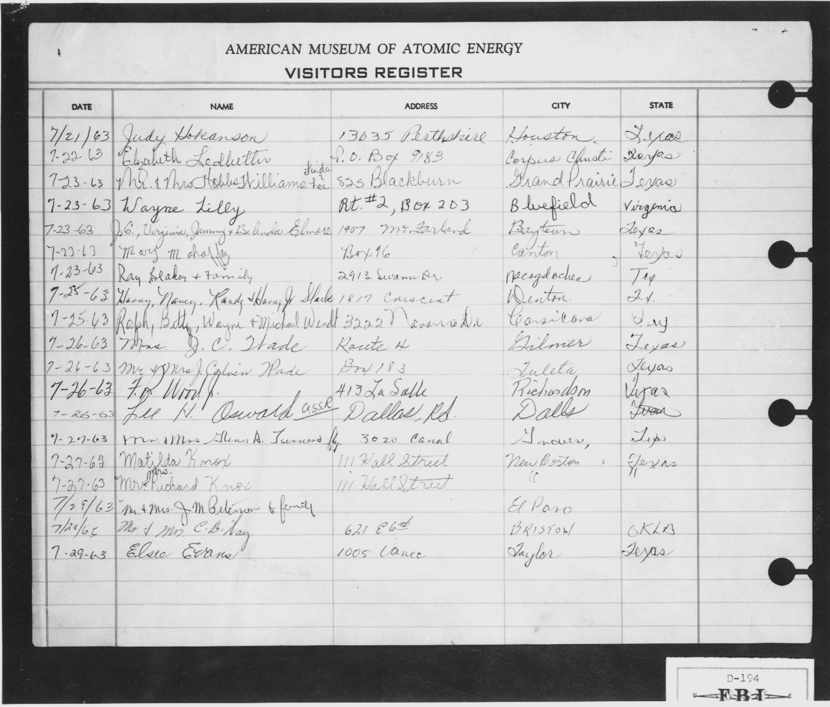 AMERICAN MUSEUM OF ATOMIC ENERGY
VISITORS REGISTER
DATE NAME ADDRESS CITY STATE
7/21/63 Judy Hokanson 13635 Perthshire Houston, Texas
7-22-63 Elizabeth Ledbetter P.O. Box 9183 Corpus Christi Texas
7-23-63 Mr. & Mrs. Williams 825 Blackburn Grand Prairie Texas
7-23-63 Wayne Lilly Rt. #2, Box 203 Bluefield Virginia
7-23-63 Virginia, Jimmy & Elmore 1907 Baytown Texas
7-23-63 Mary M Box 96 Canton, Texas
7-23-63 Ray & Family 2913 Nacogdoches Tex
7-25-63 Harry, Nancy, Randy & Harry Jr 1817 Crescent Denton Tx.
7-25-63 Ralph, Betty, Wayne & Michael 3222 Navarro Corsicana
7-26-63 Mrs J. C. Wade Route 4 Gilmer Texas
7-26-63 Mr & Mrs J. Calvin Wade Box 183 Tuleta, Texas
7-26-63 Wood Jr. 413 La Salle Richardson Texas
7-26-63 Lee H. Oswald USSR Dallas Rd. Dallas Texas
7-27-63 Mr & Mrs 3020 Canal Groves, Tex
7-27-63 Matilda Knox 111 Hall Street New Boston Texas
7-27-63 Mrs. Richard Knox 111 Hall Street "
Mr & Mrs J M Peterson & family El Paso
Mr & Mrs C. B. Kay 621 E 6th BRISTOW OKLA
7-29-63 Elsie Evans 1005 Vance Taylor Texas
D-194
FBI